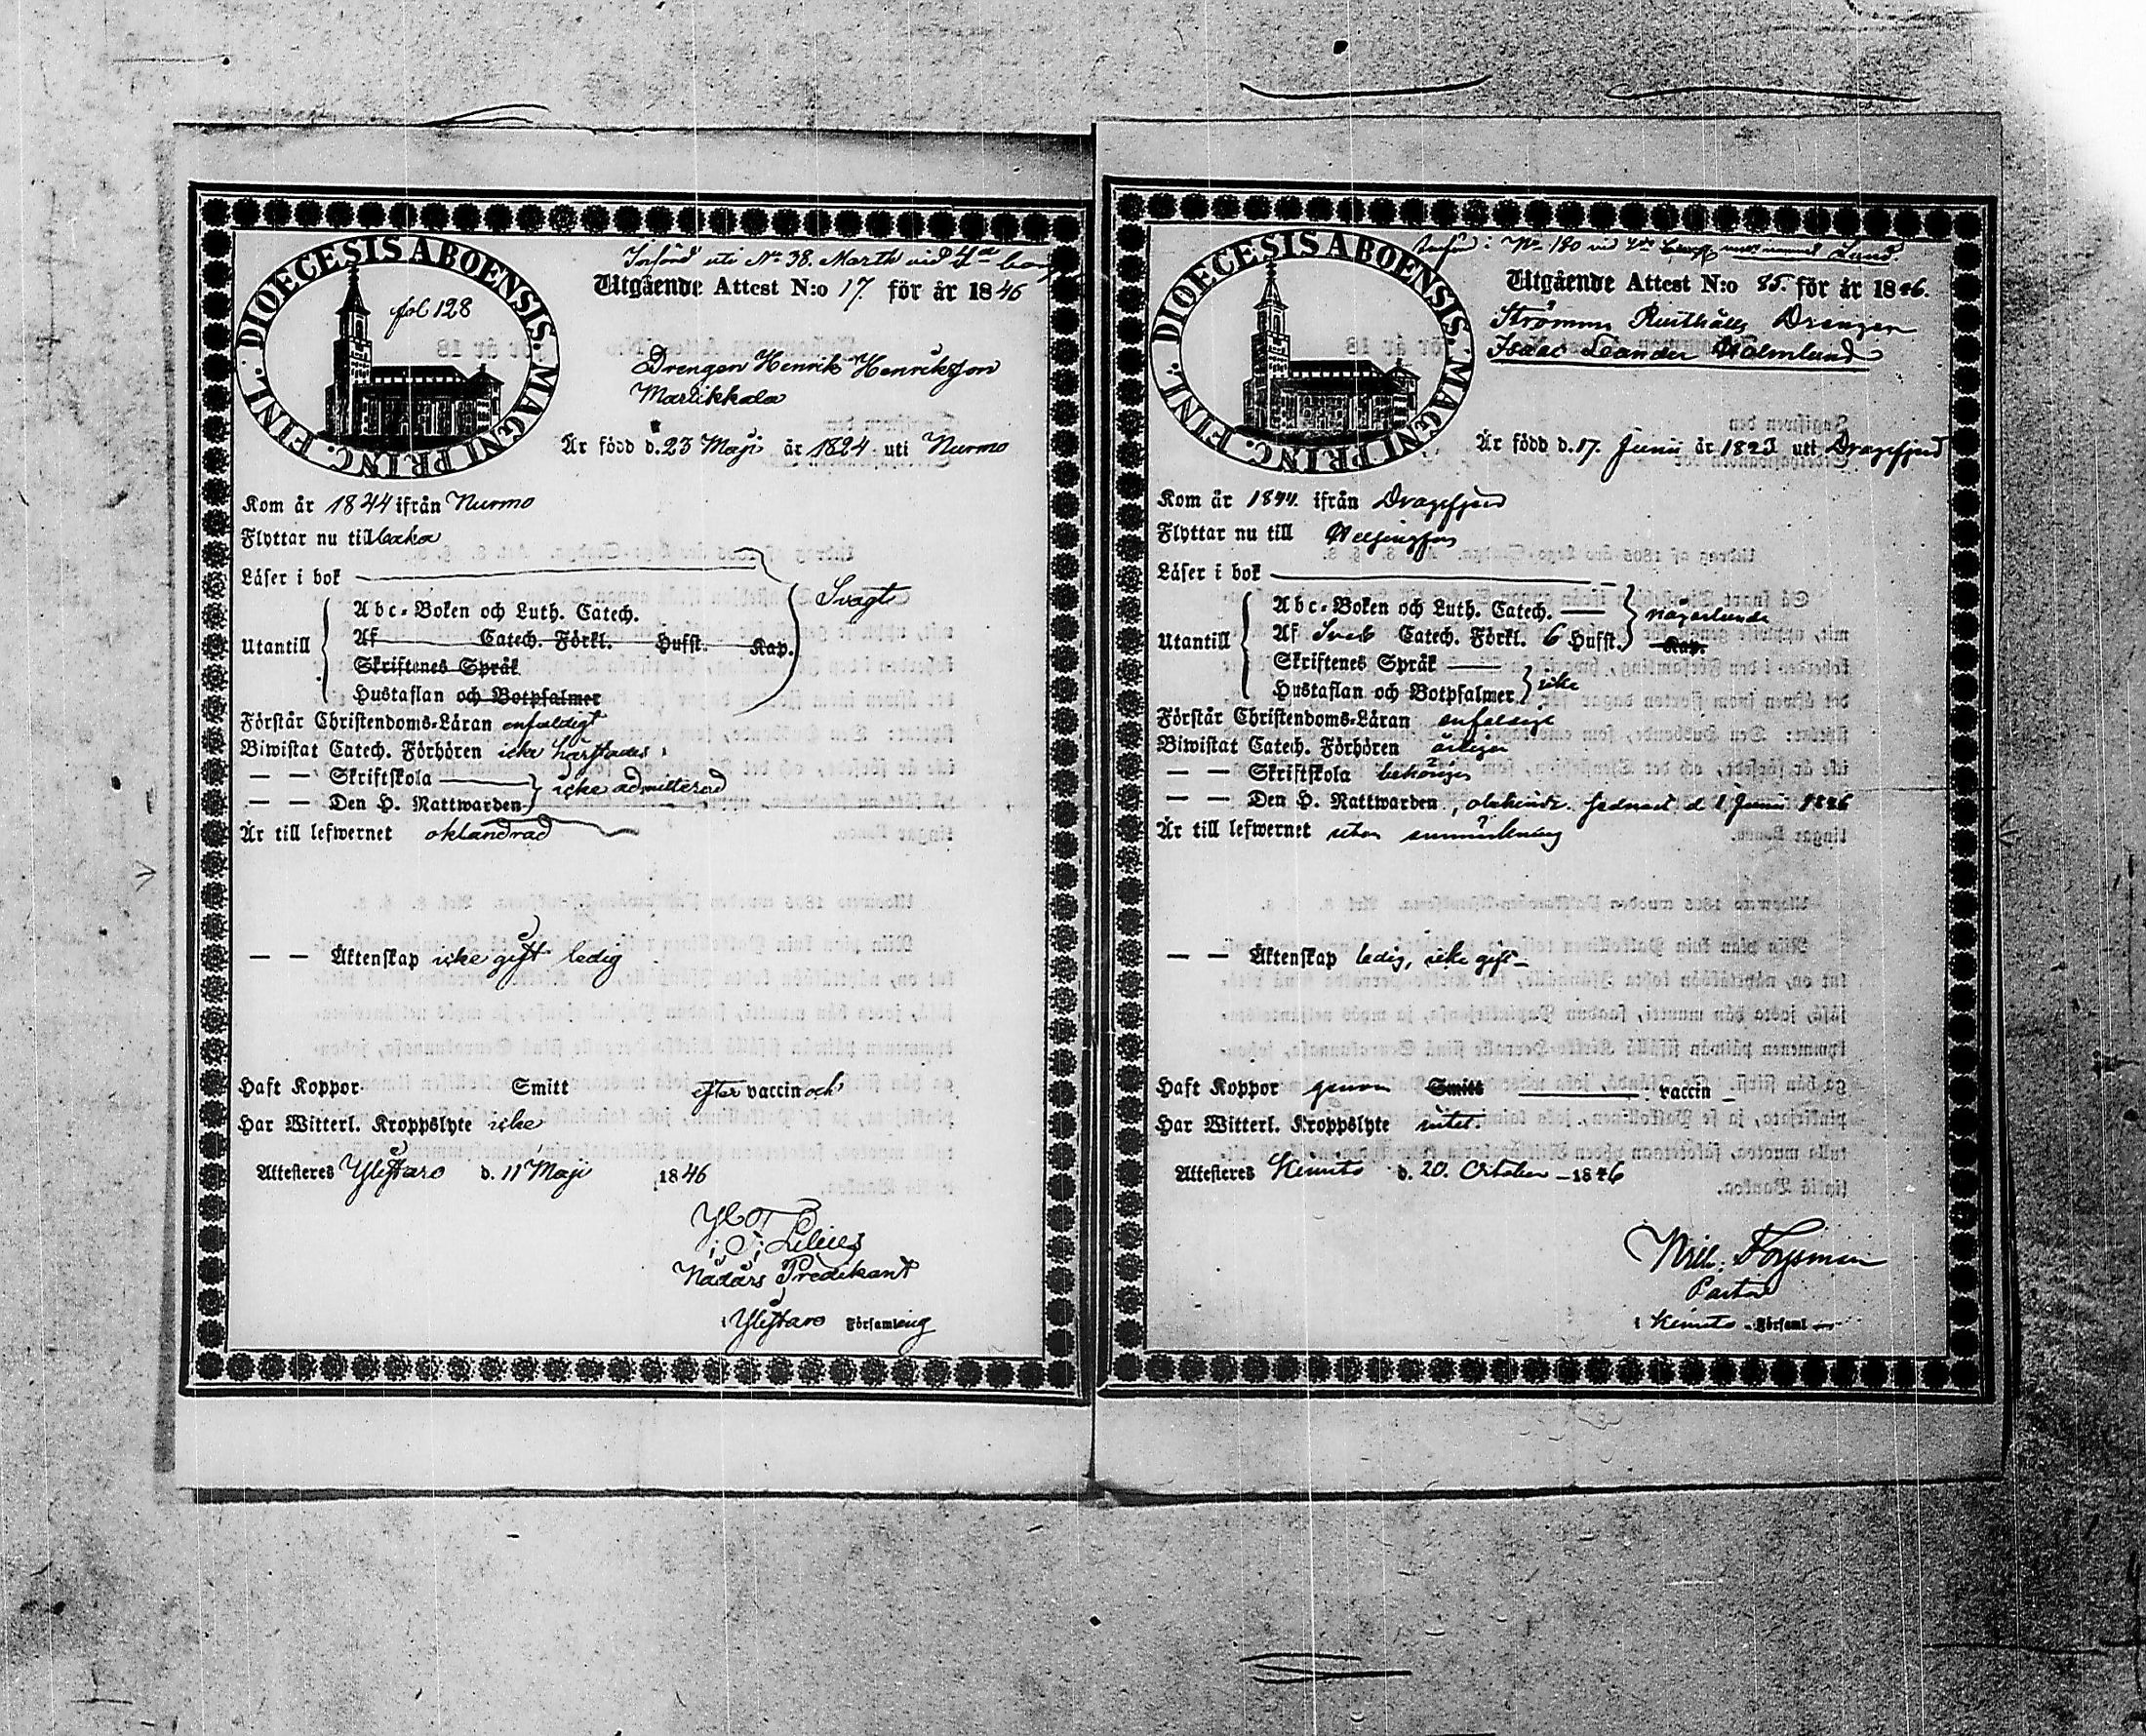 DIOECESIS ABOENSIS. MAGNI PRINC. FINL.
fol 128
Införd uti No 38. Marth vid 4de
Utgående Attest N:o 17. för år 1846
Drengen Henrik Henriksson
Marlikkala
Är född d. 23 Maji år 1824 uti Nurmo
Kom år 1844 ifrån Nurmo
Flyttar nu tillbaka
Läser i bok
Svagt
Utantill
Abc-Boken och Luth. Catech.
Af Catech. Förkl. Hufst. Kap.
Skriftenes Språk
Hustaflan och Botpsalmer
Förstår Christendoms-Läran enfaldigt
Biwistat Catech. Förhören icke härstädes
— — Skriftskola
— — Den H. Nattwarden
icke admitterad
Är till lefwernet oklandrad
— — Äktenskap icke gift ledig
Haft Koppor Smitt efter vaccin och
Har Witterl. Kroppslyte icke
Attesteres Ylistaro d. 11 Maji 1846
Nådårs Predikant
i Ylistaro Församling
DIOECESIS ABOENSIS. MAGNI PRINC. FINL.
No 180 vid 4de Lund
Utgående Attest N:o 85. för år 1846.
Strömma Rusthålls Drengen
Isaac Leander Holmlund
Är född d. 17. Junii år 1823 utt Dragsfjerd
Kom år 1844. ifrån Dragsfjerd
Flyttar nu till Helsingfors
Läser i bok
någorlunda
Utantill
Abc-Boken och Luth. Catech.
Af Sveb Catech. Förkl. 6 Hufst. Kap.
Skriftenes Språk
Hustaflan och Botpsalmer
icke
Förstår Christendoms-Läran enfaldigt
Biwistat Catech. Förhören årligen
— — Skriftskola behörigen
— — Den H. Nattwarden, sednast d 1 Junii 1846
Är till lefwernet utan anmärkning
— — Äktenskap ledig, icke gift
Haft Koppor genom Smitt vaccin
Har Witterl. Kroppslyte intet.
Attesteres Kimito d. 20. October 1846
Pastor
i Kimito Församl